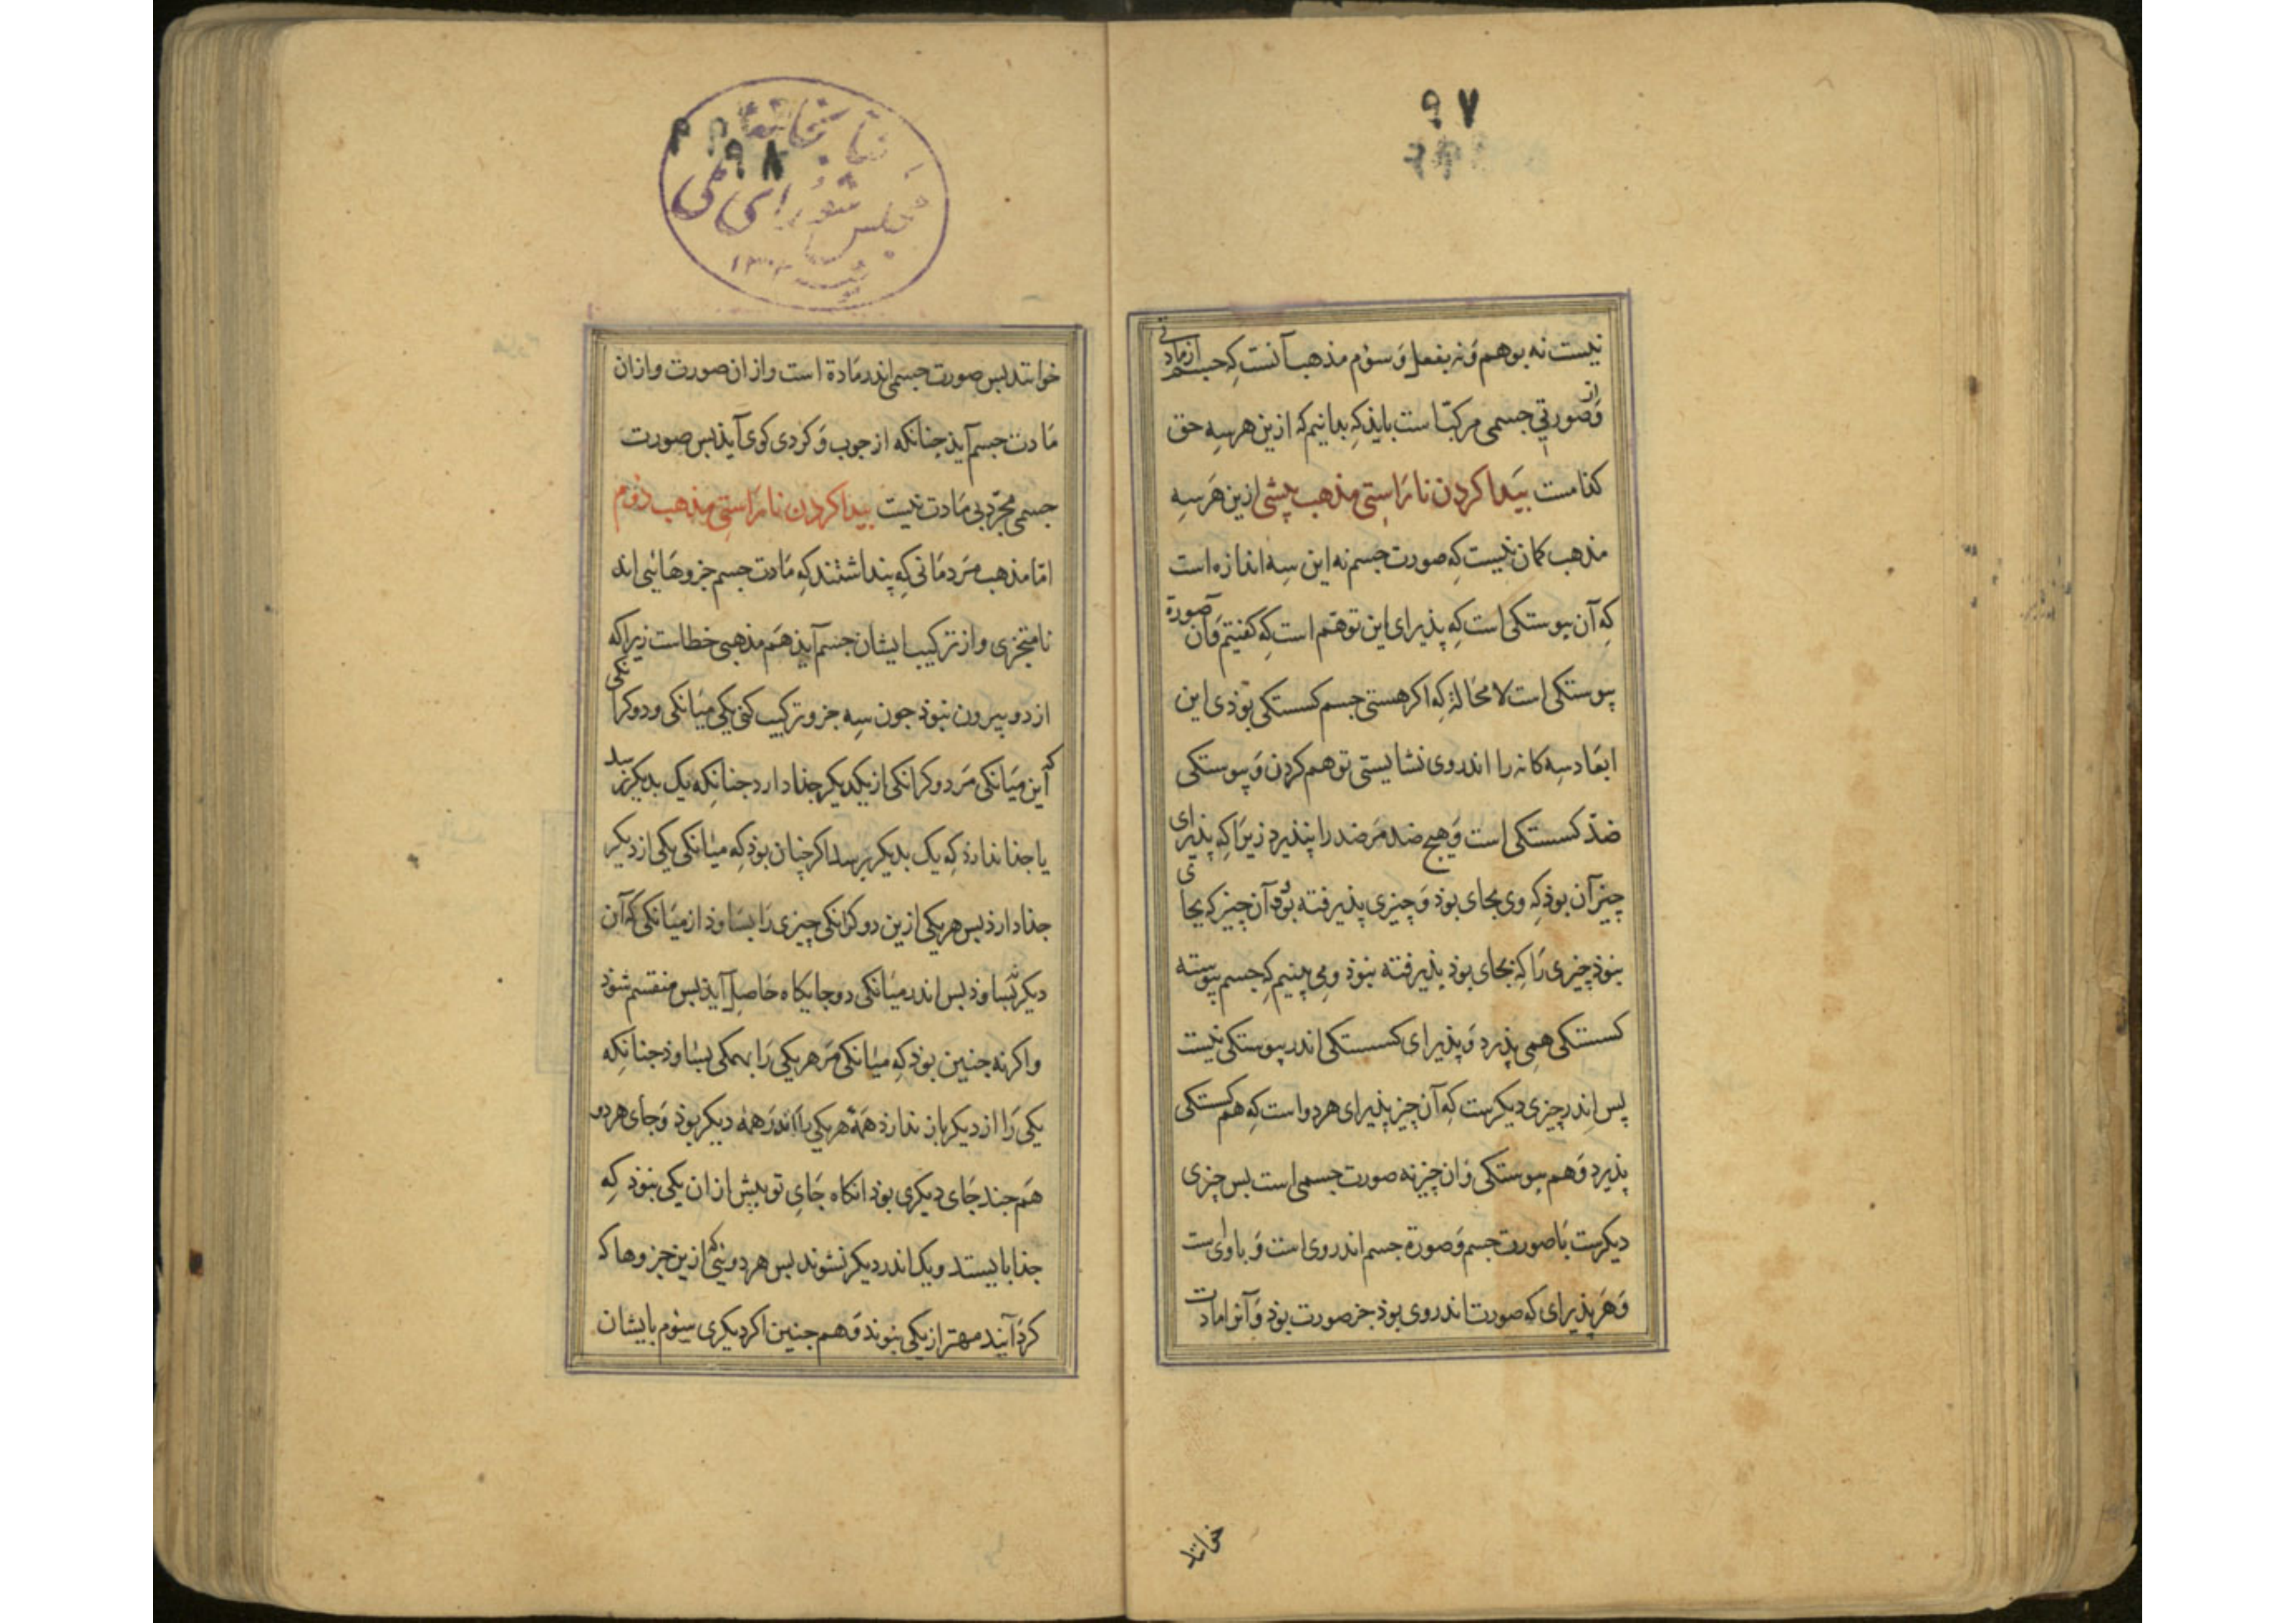 ۹۷
نیست نه بوهم وَ نه بفعل وَ سوٌم مذهب آنست کِه جسم از مادتی
وَ از صورتی جسمی مرکبّ است بایذ کِه بدانیم که ازین هر سِه حق
کذامست بیَدا کردن نا رَاستِی مذهب پیشی ازین هَر سِه
مذهب کمان نیست کِه صورت جسم نه این سِه اندازه است
کِه آن پیوستکی است کِه پذیرای این توهّم است کِه کفتیم وَ آن صورة
پیوستکی است لا محٰالة کِه اکر هستی جسم کسستکی بوٌذی این
ابعَاد سِه کانه را اندروی نشایستی توهم کردن وَ پیوستکی
ضدّ کسستکی است وَ هیج ضد مَر ضد را پنذیرد زیرَا کِه پذیرای
چیز آن بوذ کِه وی بجای بوذ وَ چیزی پذیرفته بوٌد وٓ آن چیز که بجای
بنوذ چیزی رَا کِه بجای بوذ پذیرفته بنوذ و می بینیم کِه جسم پیوسته
کسستکی همی پذیرد وَ پذیرای کسستکی اندر پیوستکی نیست
پس اندر چیزی دیکرست کِه آن چیز پذیرای هر دو است کِه هم کسستکی
پذیرد وَ هم پیوستکی وَ ان چیز نه صورت جسمی است بس چیزی
دیکرست بَا صورت جسم وَ صورة جسم اندر وی است وَ با وی است
وَ هَر پذیرای که صورت اندر وی بوذ جز صورت بوذ وَ آنرا مادت
خوانند
۹۸
کتابخانهٔ
مجلس شورای ملی
خوانند بس صورت جسمی اندر مَادة است و از ان صورت و از ان
مَادت جسم آیذ جنانکه از جوب وَ کردی کوی آیذ بس صورت
جسمی مجرّد بی مَادت نیست بیدا کردن نا رَاستِی مذهب دوٌم
امّا مذهب مَردمَانی کِه پنداشتند کِه مَادت جسم جزوهَائی اند
نامتجزی و از ترکیب ایشان جسم آیذ هَم مذهبی خطاست زیرا که
از دو بیرون بنوذ جون سِه جزو ترکیب کنی یکی میَانکی و دو کرانکی
که آین میَانکی مَر دو کرانکی از یکدیکر جذا دارد جنانکه یک بدیکر نرسد
یا جذا نداردَ کِه یک بدیکر برسد اکر چنان بوذ کِه میٰانکی یکی از دیکر
جذا دارذ بس هر یکی ازین دو کرانکی چیزی رَا بسَاوذ از میَانکی کَه آن
دیکر نبسَاوذ بس اندر میَانکی دو جایکاه حَاصِل آیذ بس منقسم شوذ
و اکر نه جنین بوذ کِه میٰانکی مَر هر یکی رَا بهمکی بسٰاوذ جنانکِه
یکی رَا از دیکر باز ندارذ همَهٔ هر یکی را اندر همهٔ دیکر بوذ وَ جأی هر دو
هَم جند جَای دیکری بوذ انکاه جَایِ دو بیش از ان یکی بنوذ کِه
جذا بایستد و یک اندر دیکر نشوند بس هر دوئی که ازین جزوها که
کرد آیند مهتر از یکی بنوند وَ هم جنین اکر دیکری سِوٌم بایشان